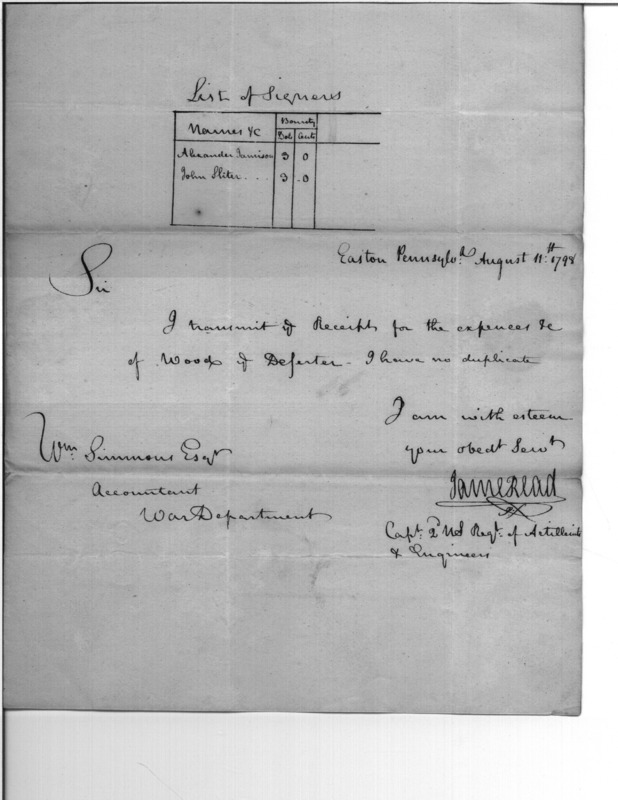 List of Signers
Names &c
Bounty
Dols Cents
Alexander Jamison 3 0
John Sliter . . . 3 .0
Easton Pennsylva. August 11.th 1798
Sir
I transmit Receipts for the expences &c
of Wood & Deserter - I have no duplicate
I am with esteem
your obedt Servt
Wm. Simmons Esqr
James Read
Accountant
War Department
Capt. 2nd Regt. of Artillerists
& Engineers